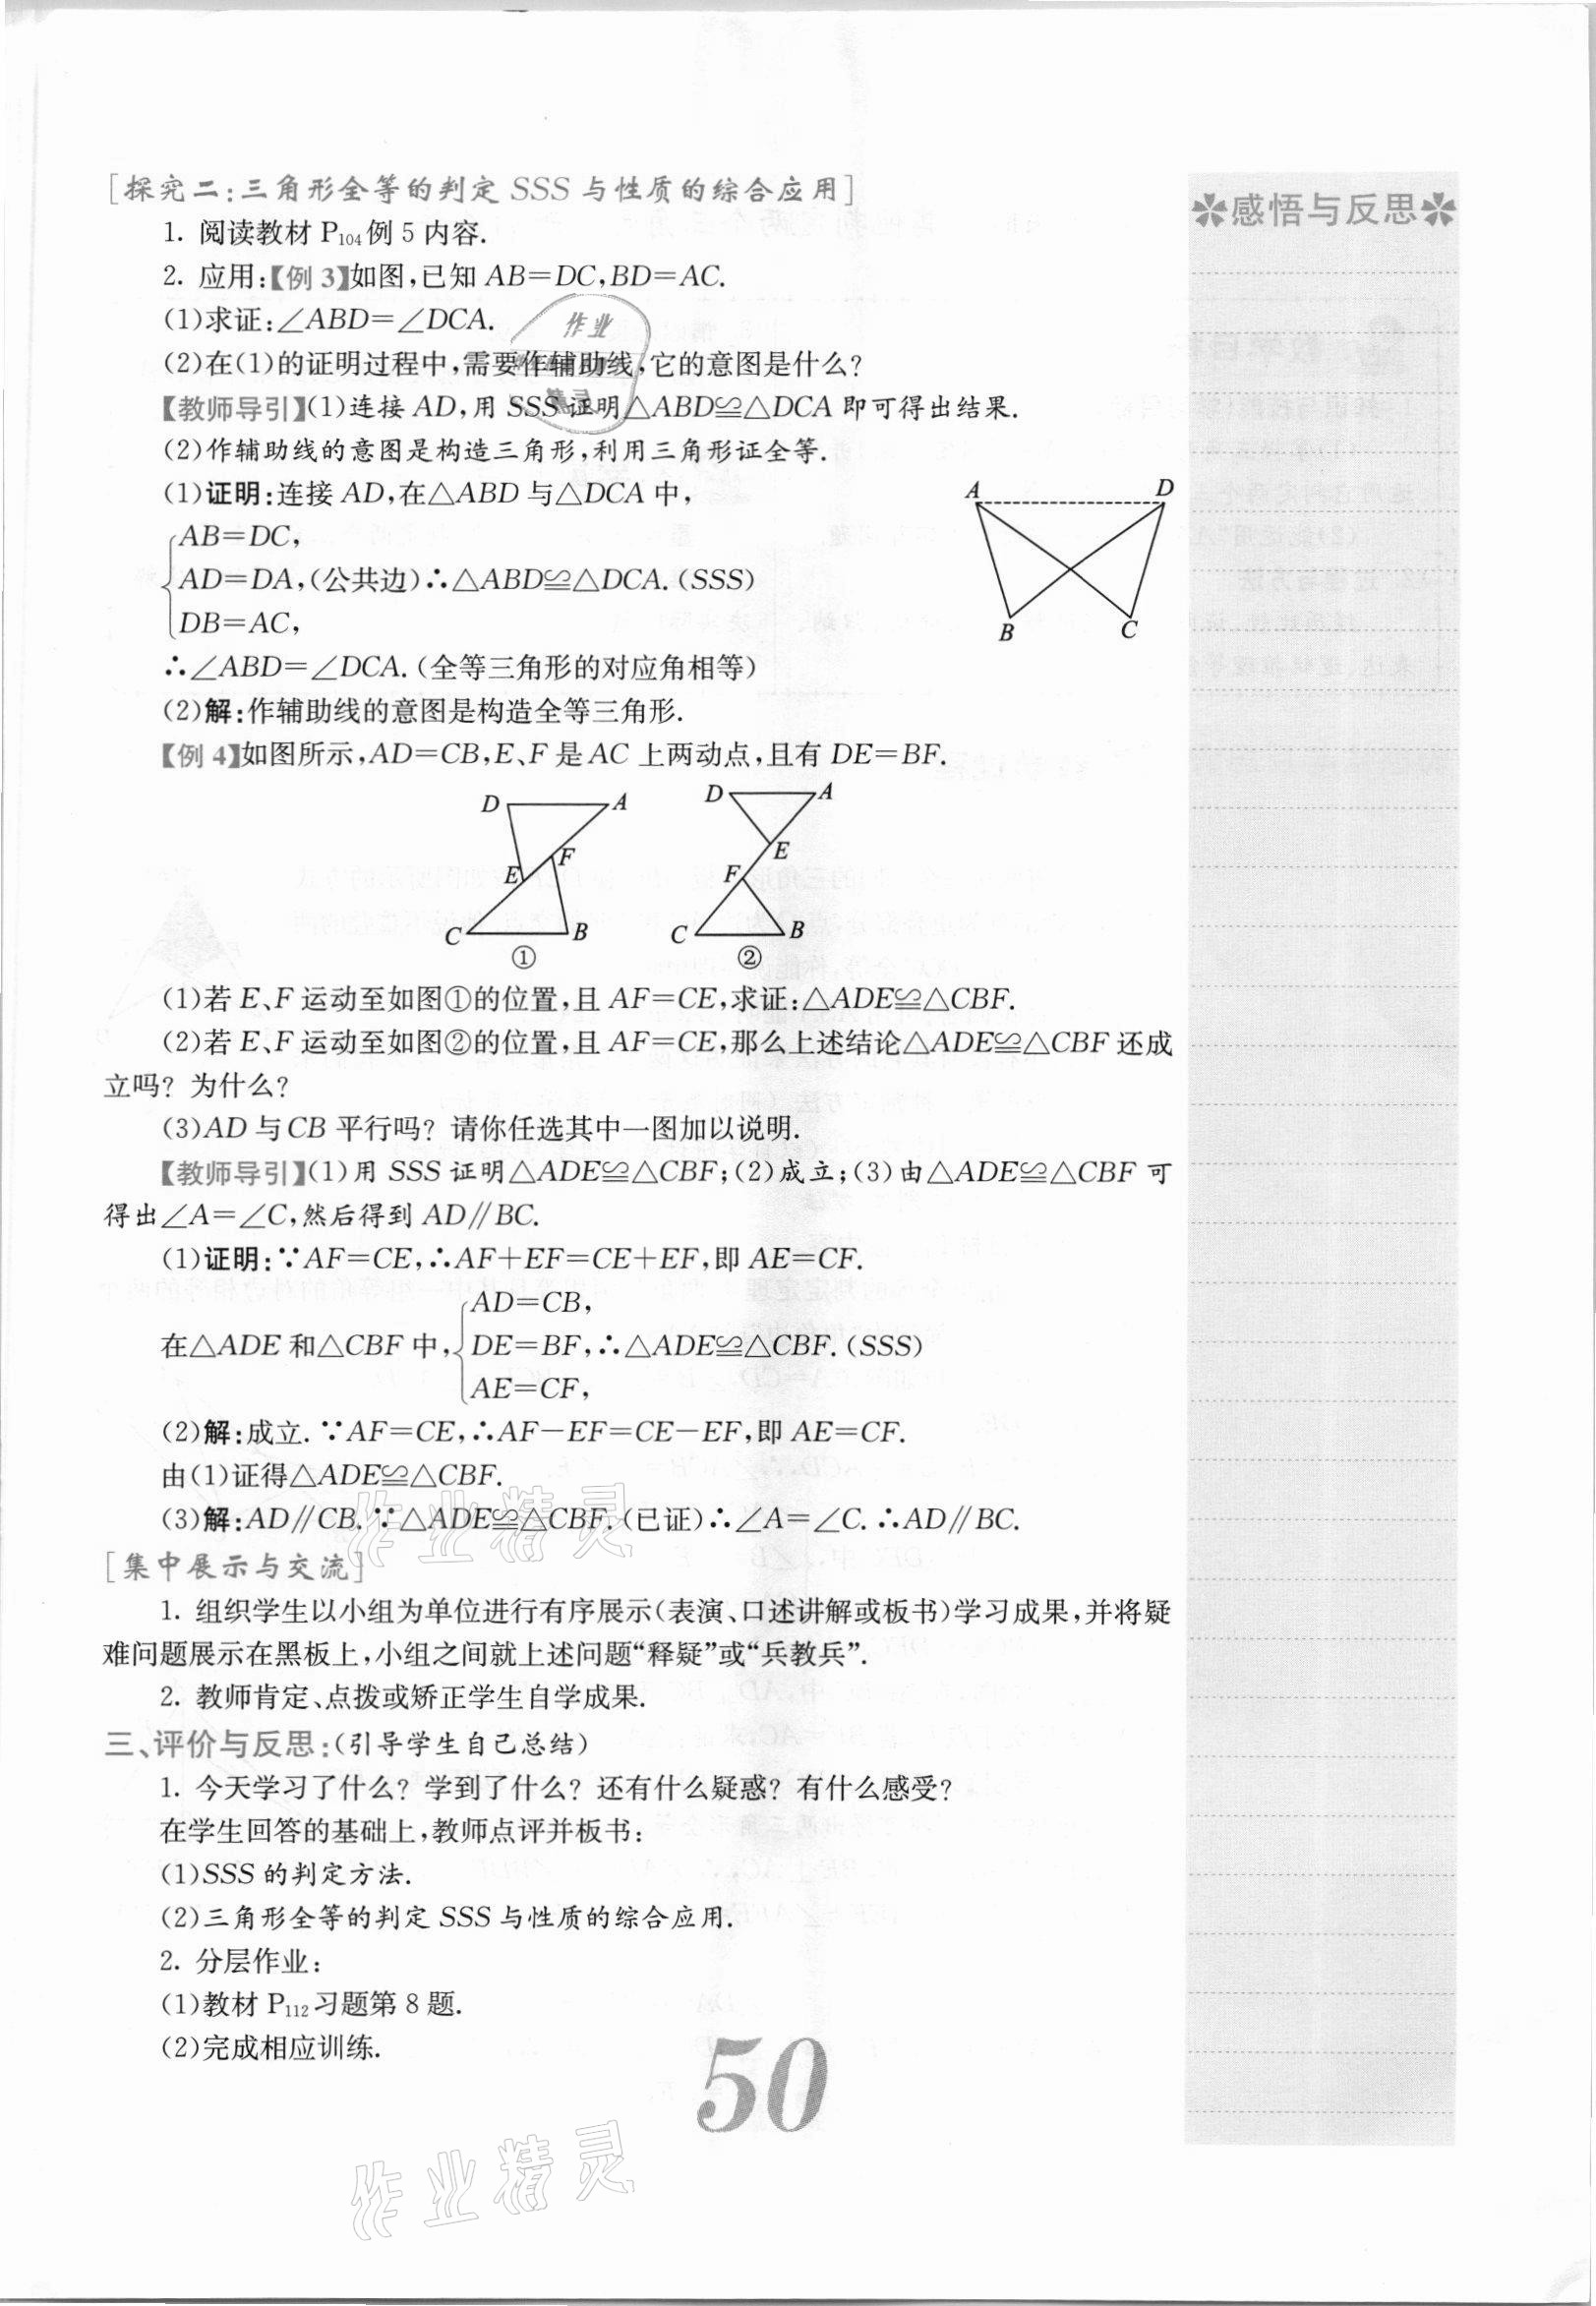 [探究二:三角形全等的判定 SSS 与性质的综合应用]
✽感悟与反思✽
1. 阅读教材 P₁₀₄例 5 内容.
2. 应用:【例 3】如图,已知 AB=DC,BD=AC.
(1)求证:∠ABD=∠DCA.
(2)在(1)的证明过程中,需要作辅助线,它的意图是什么?
【教师导引】(1)连接 AD,用 SSS 证明△ABD≌△DCA 即可得出结果.
(2)作辅助线的意图是构造三角形,利用三角形证全等.
(1)证明:连接 AD,在△ABD 与△DCA 中,
AB=DC,
AD=DA,(公共边)∴△ABD≌△DCA.(SSS)
DB=AC,
A D
B C
∴∠ABD=∠DCA.(全等三角形的对应角相等)
(2)解:作辅助线的意图是构造全等三角形.
【例 4】如图所示,AD=CB,E、F 是 AC 上两动点,且有 DE=BF.
D A D A
E F E F
C B C B
① ②
(1)若 E、F 运动至如图①的位置,且 AF=CE,求证:△ADE≌△CBF.
(2)若 E、F 运动至如图②的位置,且 AF=CE,那么上述结论△ADE≌△CBF 还成
立吗? 为什么?
(3)AD 与 CB 平行吗? 请你任选其中一图加以说明.
【教师导引】(1)用 SSS 证明△ADE≌△CBF;(2)成立;(3)由△ADE≌△CBF 可
得出∠A=∠C,然后得到 AD∥BC.
(1)证明:∵AF=CE,∴AF+EF=CE+EF,即 AE=CF.
AD=CB,
在△ADE 和△CBF 中,DE=BF,∴△ADE≌△CBF.(SSS)
AE=CF,
(2)解:成立. ∵AF=CE,∴AF−EF=CE−EF,即 AE=CF.
由(1)证得△ADE≌△CBF.
(3)解:AD∥CB. ∵△ADE≌△CBF.(已证)∴∠A=∠C. ∴AD∥BC.
[集中展示与交流]
1. 组织学生以小组为单位进行有序展示(表演、口述讲解或板书)学习成果,并将疑
难问题展示在黑板上,小组之间就上述问题“释疑”或“兵教兵”.
2. 教师肯定、点拨或矫正学生自学成果.
三、评价与反思:(引导学生自己总结)
1. 今天学习了什么? 学到了什么? 还有什么疑惑? 有什么感受?
在学生回答的基础上,教师点评并板书:
(1)SSS 的判定方法.
(2)三角形全等的判定 SSS 与性质的综合应用.
2. 分层作业:
(1)教材 P₁₁₂习题第 8 题.
(2)完成相应训练.
50
作业精灵
作业精灵
作业